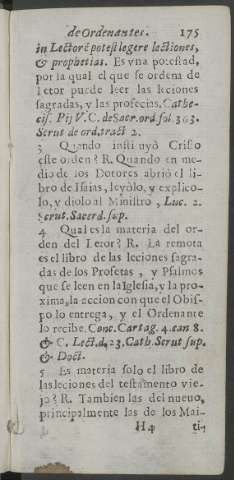 de Ordenantes. 175
in Lectorē potest legere lectiones,
& prophetias. Es vna potestad,
por la qual el que se ordena de
Letor puede leer las leciones
sagradas, y las profecias. Cathe-
cis. Pij V. C. de Sacr. ord fol 303.
Scrut de ord, tract 2.
3 Quando insti uyò Cristo
este orden? R. Quando en me-
dio de los Dotores abriò el li-
bro de Isaias, leyòlo, y explico-
lo, y diolo al Ministro, Luc. 2.
Scrut. Sacerd. sup.
4 Qual es la materia del or-
den del Letor? R. La remota
es el libro de las leciones sagra-
das de los Profetas, y Psalmos
que se leen en la Iglesia, y la pro-
xima, la accion con que el Obis-
po lo entrega, y el Ordenante
lo recibe. Conc. Cartag. 4. can 8.
& C. Lect. d. 23. Cath. Scrut sup.
& Doct.
5 Es materia solo el libro de
las leciones del testamento vie-
jo? R. Tambien las del nueuo,
principalmente las de los Mai-
H4 ti-